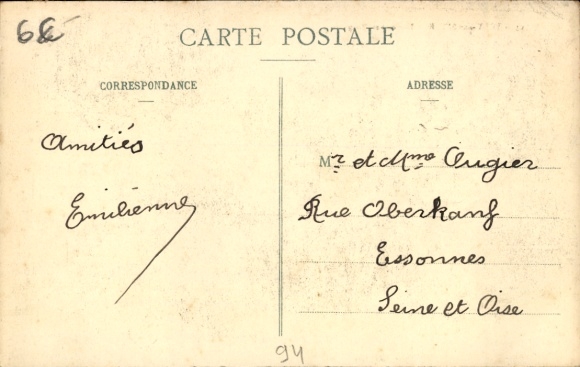 6€
CARTE POSTALE
CORRESPONDANCE
ADRESSE
Amitiés
Emilienne
Mr et Mme Augier
Rue Oberkanf
Essonnes
Seine et Oise
94